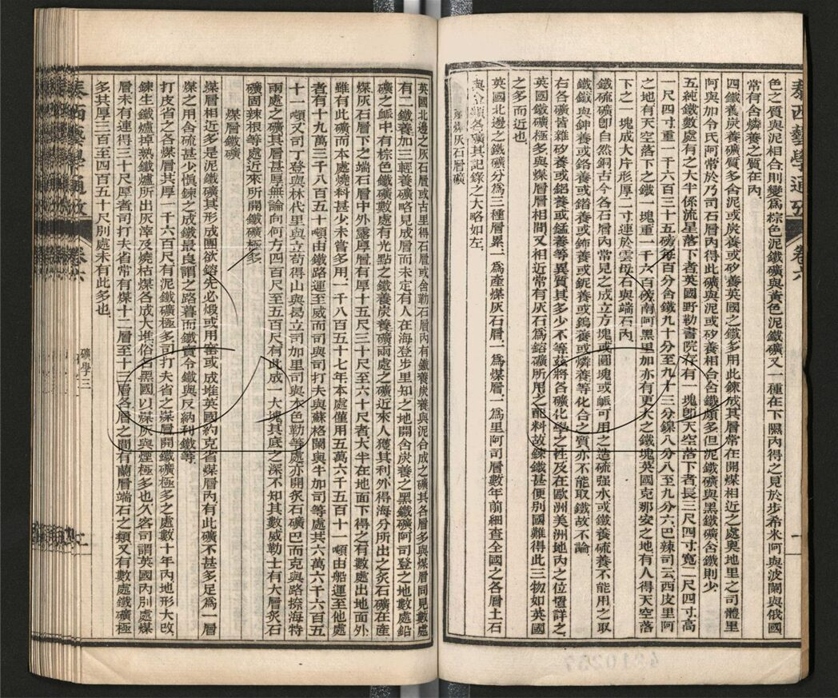 泰西藝學通攷 卷六
色之質與泥相合則變為棕色泥鐵礦與黃色泥鐵礦又一種在下隰內得之見於步希米阿與波闌與俄國
常有含燐養之質在內
四鐵養炭養礦質多含泥或炭養或矽養英國之鐵多用此鍊成其層常在開煤相近之處奧地里之司體里
阿與加令氏阿常於乃司石層內得此礦與泥或矽養相合含鐵頗多但泥鐵礦與黑鐵礦含鐵則少
五純鐵數處有之大半係流星落下者英國野勒書院存有一塊卽天空落下者長三尺四寸寬二尺四寸高
一尺四寸重一千六百三十五磅每百分含鐵九十分至九十三分鎳八分八至九分六巴辣司云西皮里阿
之地有天空落下之鐵一塊重一千六百磅南阿黑里加亦有更大之鐵塊英國克那安之地有人得天空落
下之一塊成大片形厚二寸連於雲母石與端石內
鐵硫礦卽自然銅古今各石層內常見之成立方塊或圓塊或
可用之造硫强水或鐵養硫養不能用之取
鐵鐵與鉮養或鉻養或錯養或鈽養或鈮養或鎢養或燐養等化合之質亦不能取鐵故不論
右各礦皆雜矽養或鋁養或錳養等異質其多少不等茲將各礦化學之性及在歐洲美洲地內之位置詳之
英國鐵礦極多與煤層層相間又相近常有灰石為鎔礦所用之配料故鍊鐵甚便別國難得此三物如英國
之多而近也
英國北邊之鐵礦分為三種層累一為產煤灰石層一為煤層一為里阿司層數年前細查全國之各層土石
與合鐵各礦其記錄之大略如左
產煤灰石層礦
英國北邊之灰石層或古里得石層或含勒石層內有鐵養炭養與泥合成之礦其各層多與煤層同見數處
有二鐵養加三輕養礦略見成層而未定有人在海登步里知之地開含炭養之黑鐵礦阿司登之地數處鉛
礦之
中有棕色鐵礦數處有光點之鐵養炭養礦兩處之礦近來人獲其利外得海分所出之炙石礦在產
煤灰石層下之端石層中外露厚層有厚十五尺三十尺至六十尺者大半在地面下得之有數處出地面外
雖有此礦而本處燒料甚少未嘗多用一千八百五十七年本處僅用五萬六千五百十一噸由船運至他處
者有十九萬三千八百五十噸由鐵路運至威而司與司打夫與蘇格闌與牛加司等處共六萬六千六百五
十一噸又司丁登與林代里與立苟得山與曷立司加里司與本色勒等處亦開炙石礦巴而克與路撩海特
兩處之礦其層甚厚無論向何方四百尺至五百尺有此成一大塊其底之深不知其數威勒士有大層炙石
礦固辣根等處近來所開鐵礦極多
煤層鐵礦
煤層相近多是泥鐵礦其形成團欲鎔先必煆或用窰或成堆英國約克省煤層內有此礦不甚多足為一層
煤之用含硫甚少慎鍊之成鐵最良謂之路暮而鐵賣令鐵與反納利鐵等
打皮省之各煤層其厚一千六百尺有泥鐵礦極多司打夫省之煤層開鐵礦極多之處數十年內地形大改
鍊生鐵爐掉熟鐵爐所出灰滓及燒枯煤各成大堆俗名黑國因煤灰與煙極多也久客司謂英國內別處煤
層未有連得三十尺厚者司打夫省常有煤十二層至十三層各層之間有蘭層端石之類又有數處鐵礦極
多其厚三百至四百五十尺別處未有此多也
礦學三
泰西藝學通攷 卷六